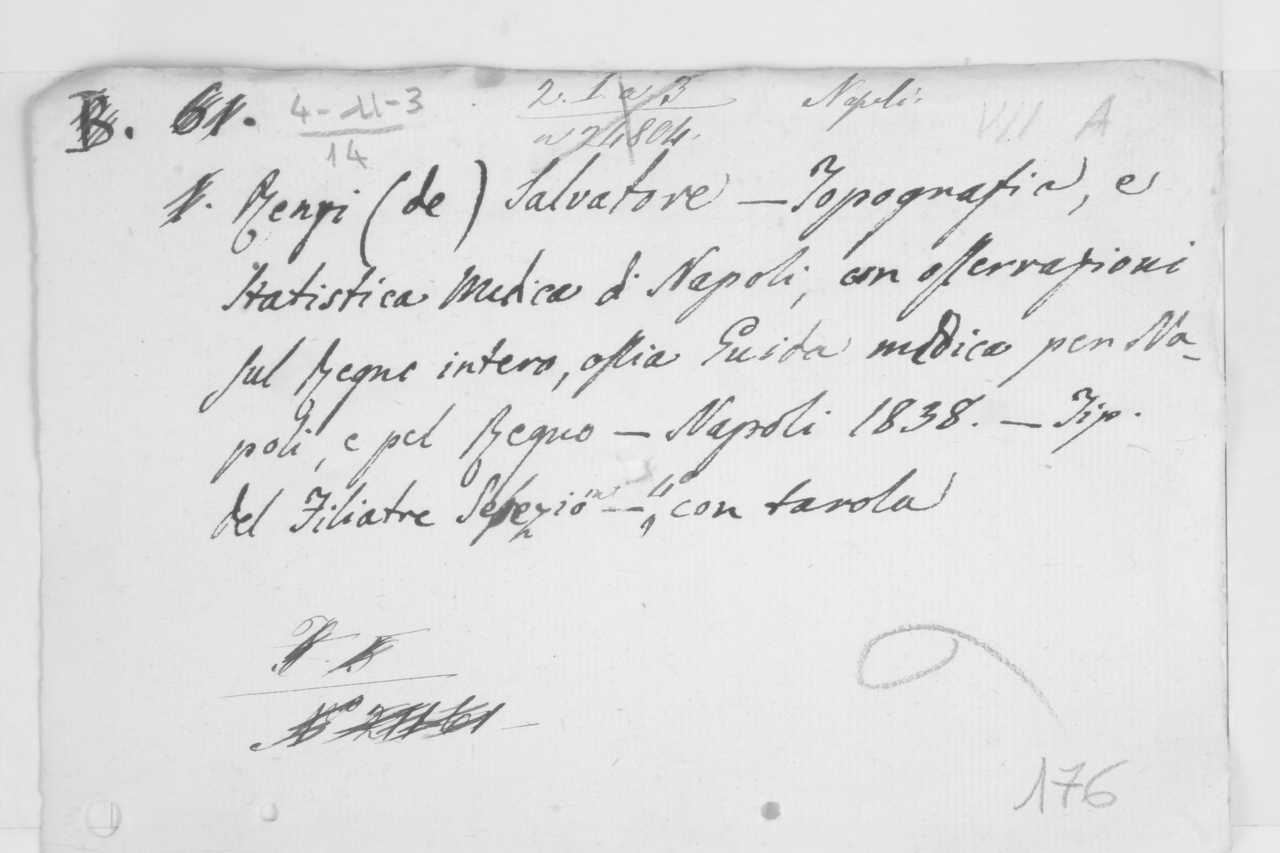 B. 61. 4-11-3 2. I. a 3 Napoli
14 n 24804. VII A
1. Renzi (de) Salvatore — Topografia, e
Statistica Medica di Napoli, con osservazioni
sul Regno intero, ossia Guida medica per Na-
poli, e pel Regno — Napoli 1838. — Tip.
del Filiatre Sebezio — 4°, con tavola
176